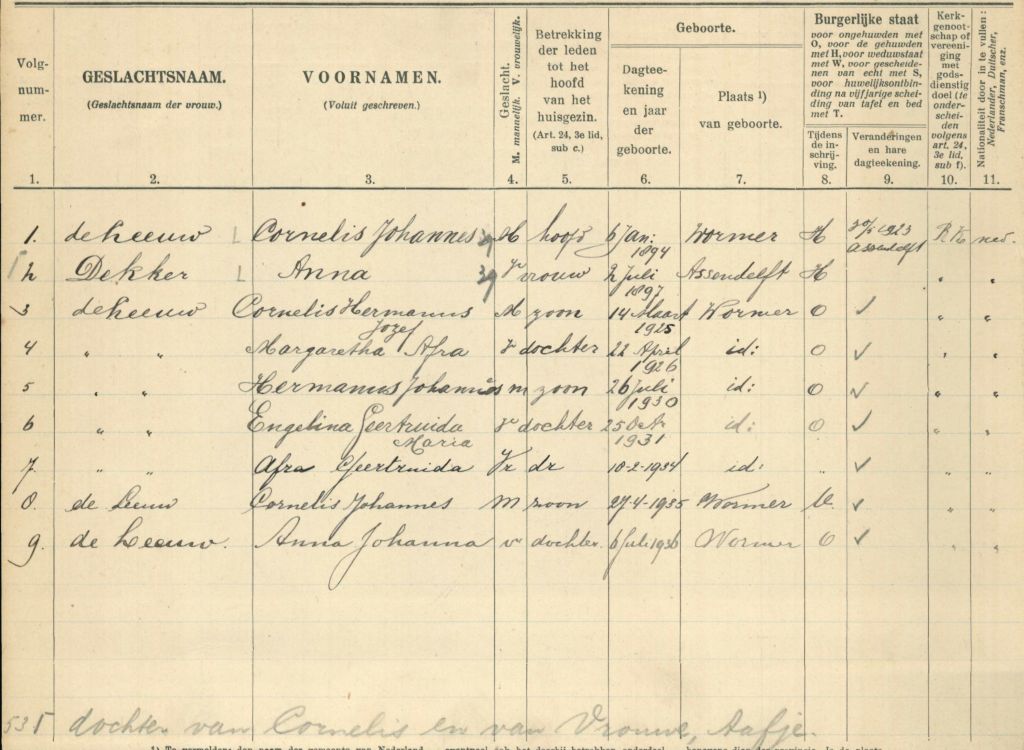 Volg-
num-
mer.
1.
GESLACHTSNAAM.
(Geslachtsnaam der vrouw.)
2.
VOORNAMEN.
(Voluit geschreven.)
3.
Geslacht.
M. mannelijk. V. vrouwelijk.
4.
Betrekking
der leden
tot het
hoofd
van het
huisgezin.
(Art. 24, 3e lid,
sub c.)
5.
Geboorte.
Dagtee-
kening
en jaar
der
geboorte.
6.
Plaats 1)
van geboorte.
7.
Burgerlijke staat
voor ongehuwden met
O, voor de gehuwden
met H, voor weduwstaat
met W, voor gescheide-
nen van echt met S,
voor huwelijksontbin-
ding na vijfjarige schei-
ding van tafel en bed
met T.
Tijdens
de in-
schrij-
ving.
8.
Veranderingen
en hare
dagteekening.
9.
Kerk-
genoot-
schap of
vereeni-
ging
met
gods-
dienstig
doel (te
onder-
schei-
den
volgens
art. 24,
3e lid,
sub f).
10.
Nationaliteit door in te vullen:
Nederlander, Duitscher,
Franschman, enz.
11.
1. de Leeuw Cornelis Johannes M hoofd 6 Jan: 1894 Wormer H 1923 Assendelft R.K. ned.
2 Dekker Anna Vr vrouw 2 Juli 1897 Assendelft H " "
3 de Leeuw Cornelis Hermanus Jozef M zoon 14 Maart 1925 Wormer O ✓ " "
4 " " Margaretha Afra V dochter 22 April 1926 id: O ✓ " "
5 " " Hermanus Johannes m zoon 26 Juli 1930 id: O ✓ " "
6 " " Engelina Geertruida Maria V dochter 25 Oct 1931 id: O ✓ " "
7. " " Afra Geertruida Vr dr 10-2-1934 id: " ✓ " "
8. de Leeuw Cornelis Johannes M zoon 27-4-1935 Wormer O. ✓ " "
9. de Leeuw. Anna Johanna v dochter. 6 Juli 1936 Wormer O ✓ " "
dochter van Cornelis en van Vrouwe, Aafje.